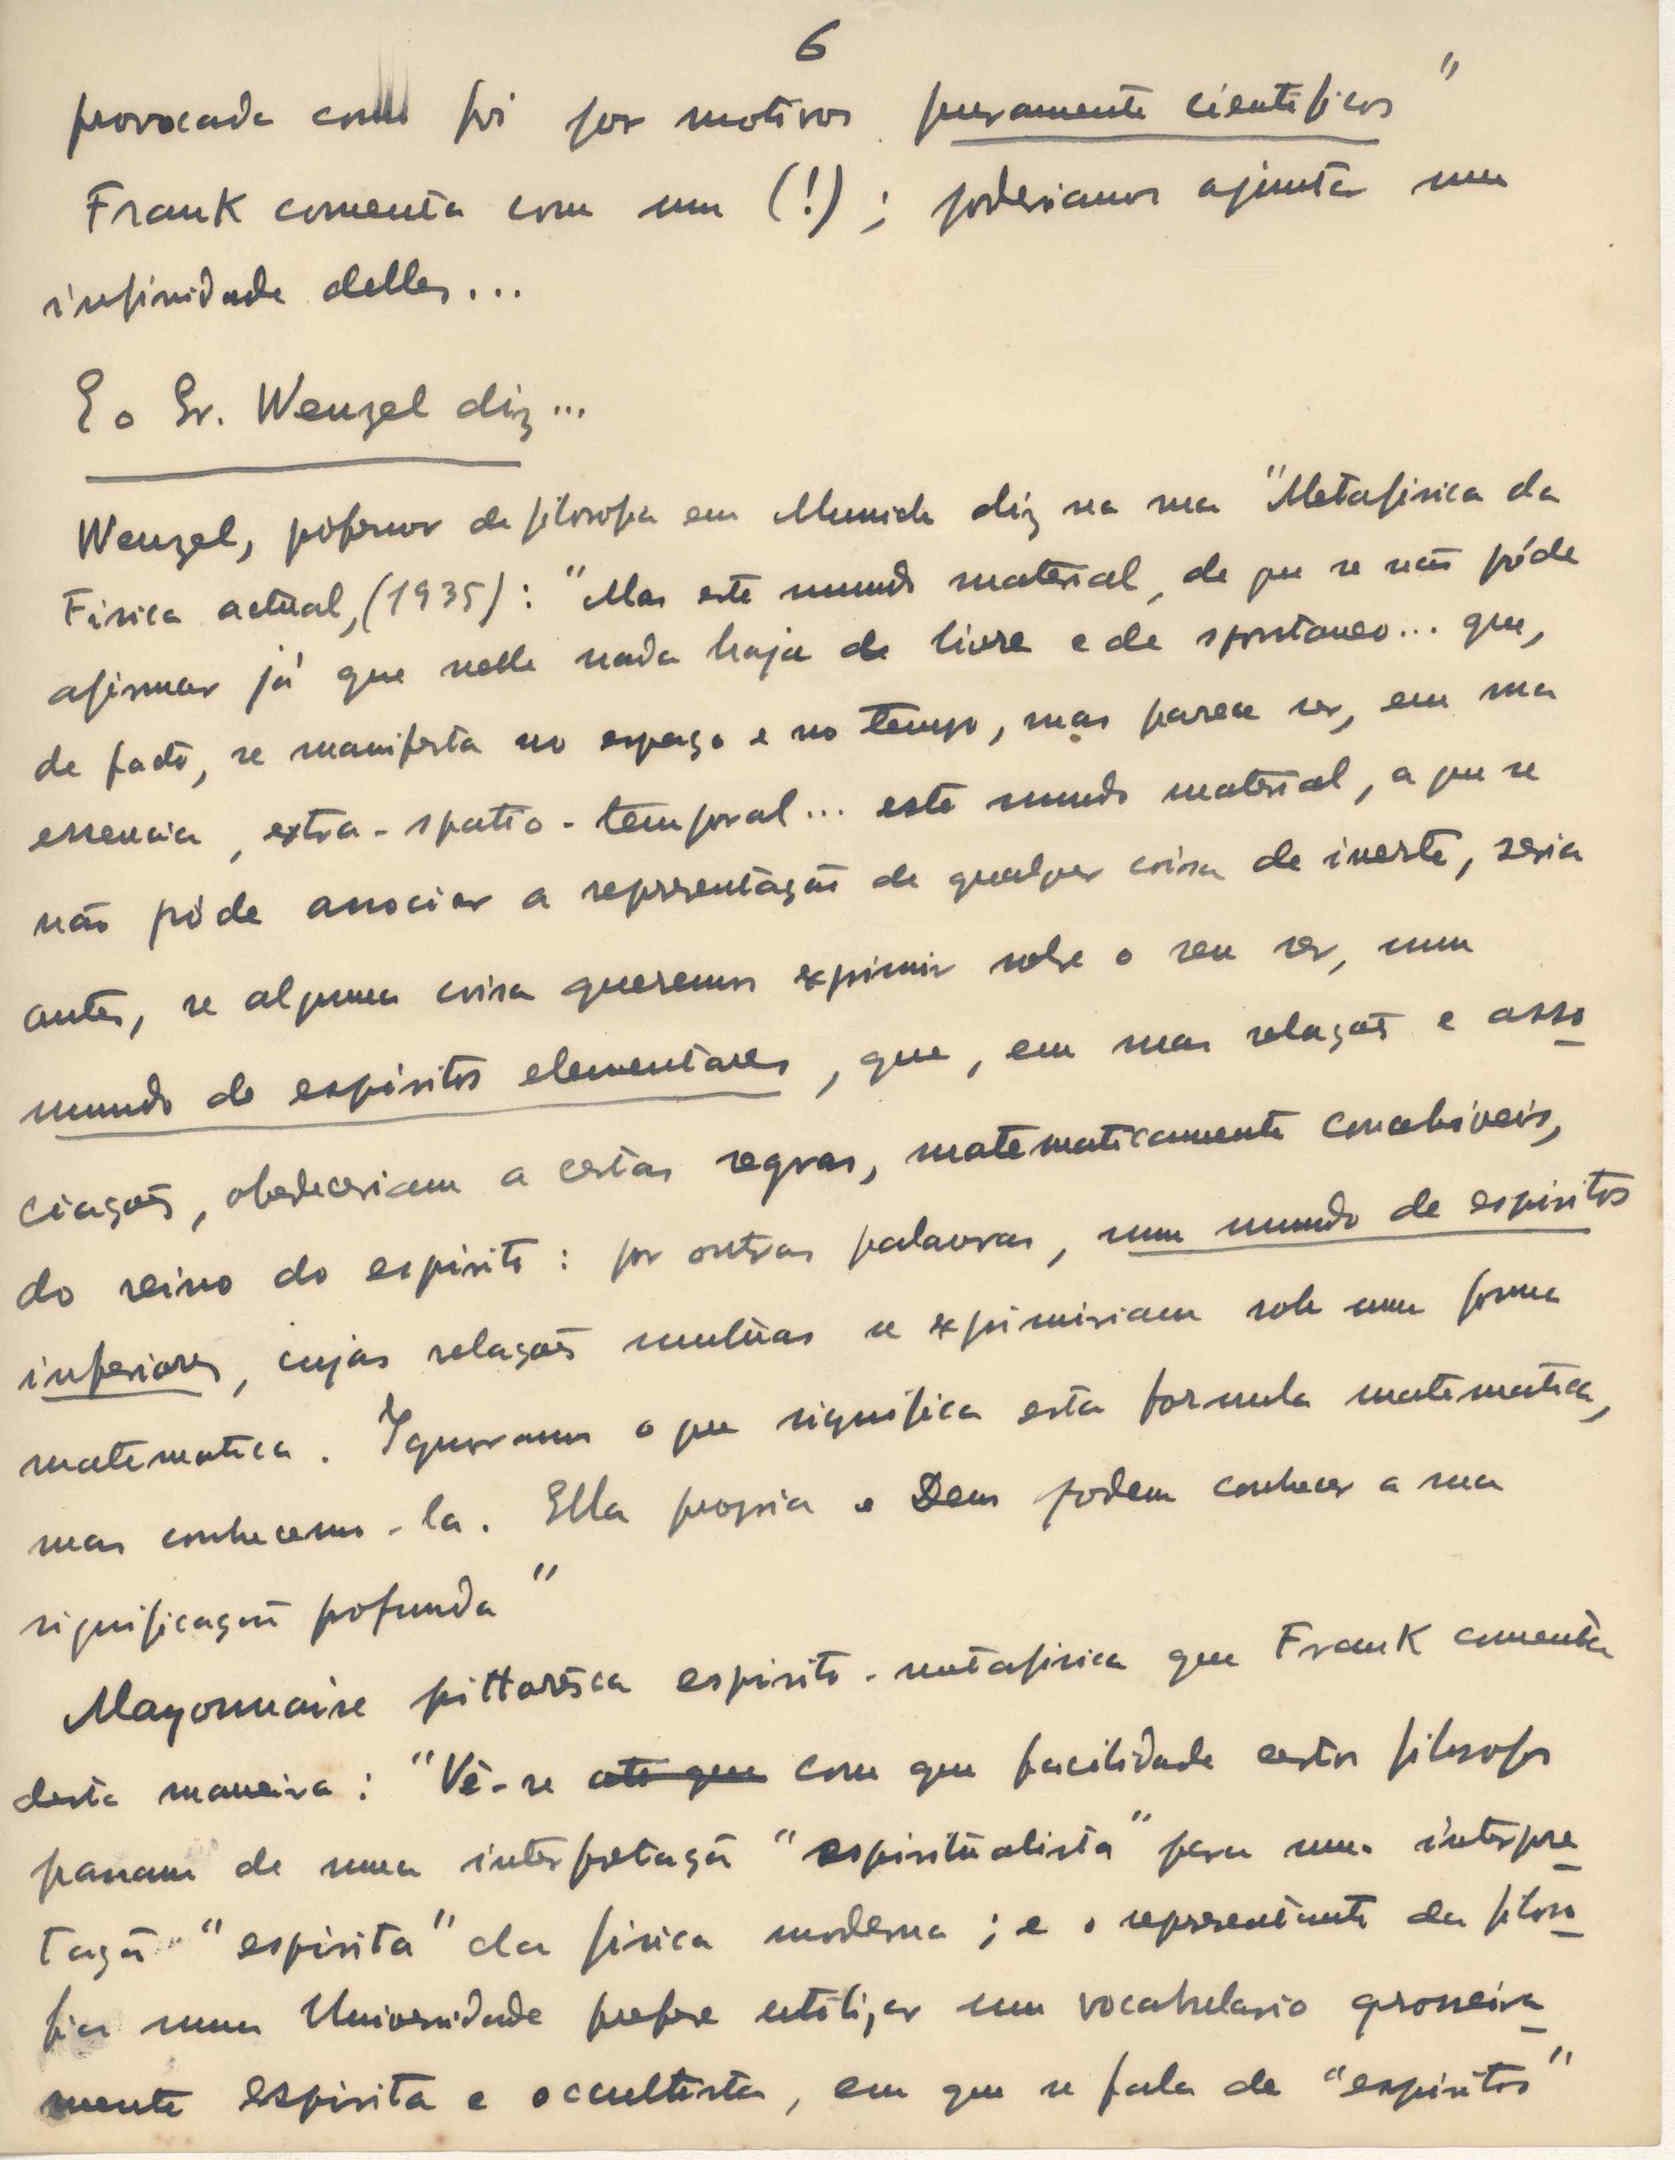 6
provocada como foi por motivos puramente cientificos"
Frank comenta com um (!); poderiamos ajuntar uma
infinidade delles...
E o Sr. Wenzel diz...
Wenzel, professor de filosofia em Munich diz na sua "Metafisica da
Fisica actual, (1935): "Mas este mundo material, de que se não póde
afirmar já que nelle nada haja de livre e de spontaneo... que,
de facto, se manifesta no espaço e no tempo, mas parece ser, em sua
essencia, extra-spatio-temporal... este mundo material, a que se
não póde associar a representação de qualquer coisa de inerte, seria
antes, se alguma coisa queremos exprimir sobre o seu ser, num
mundo de espiritos elementares, que, em suas relações e asso
ciações, obedeceriam a certas regras, matematicamente concebiveis,
do reino do espirito: por outras palavras, num mundo de espiritos
inferiores, cujas relações mutuas se exprimiriam sob uma forma
matematica. Ignoramos o que significa esta formula matematica,
mas conhecemo-la. Ella propria e Deus podem conhecer a sua
significação profunda"
Mayonnaise pittoresca espirito-metafisica que Frank comenta
desta maneira: "Vê-se ato que com que facilidade certos filosofos
passam de uma interpretação "espiritualista" para uma interpre
tação "espirita" da fisica moderna; e o representante da filoso
fia numa Universidade prefere utilizar um vocabulario grosseira
mente espirita e occultista, em que se fala de "espiritos"